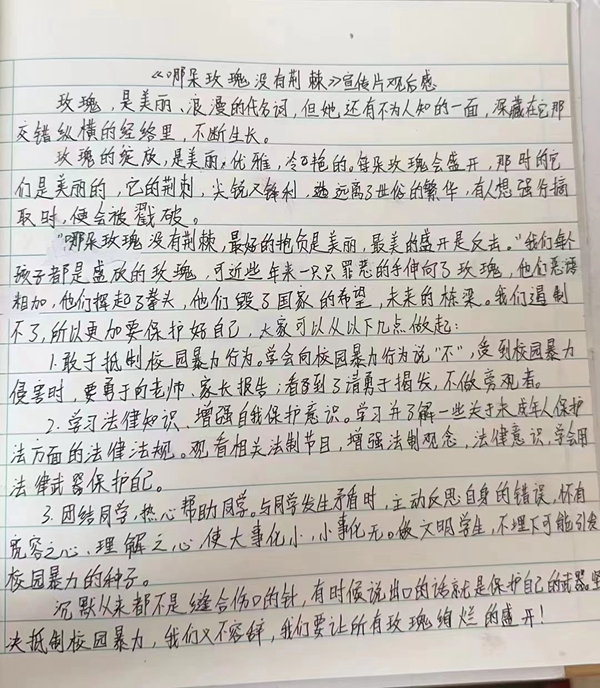 《哪朵玫瑰没有荆棘》宣传片观后感
玫瑰，是美丽、浪漫的代名词，但她还有不为人知的一面，深藏在它那
交错纵横的经络里，不断生长。
玫瑰的绽放，是美丽，优雅，冷艳的。每朵玫瑰会盛开，那时的它
们是美丽的，它的荆刺，尖锐又锋利，远离了世俗的繁华，有人想强行摘
取时，便会被戳破。
"哪朵玫瑰没有荆棘，最好的抱负是美丽，最美的盛开是反击。"我们每个
孩子都是盛放的玫瑰，可近些年来一只只罪恶的手伸向了玫瑰，他们恶语
相加，他们挥起了拳头，他们毁了国家的希望，未来的栋梁。我们遏制
不了，所以更加要保护好自己，大家可以从以下几点做起：
1.敢于抵制校园暴力行为。学会向校园暴力行为说"不"，受到校园暴力
侵害时，要勇于向老师、家长报告；看到了请勇于揭发，不做旁观者。
2.学习法律知识、增强自我保护意识。学习并了解一些关于未成年人保护
法方面的法律法规。观看相关法制节目，增强法制观念，法律意识，学会用
法律武器保护自己。
3.团结同学，热心帮助同学。与同学发生矛盾时，主动反思自身的错误，怀有
宽容之心、理解之心，使大事化小，小事化无。做文明学生，不埋下可能引发
校园暴力的种子。
沉默从来都不是缝合伤口的针，有时候说出口的话就是保护自己的武器。坚
决抵制校园暴力，我们义不容辞，我们要让所有玫瑰绚烂的盛开！